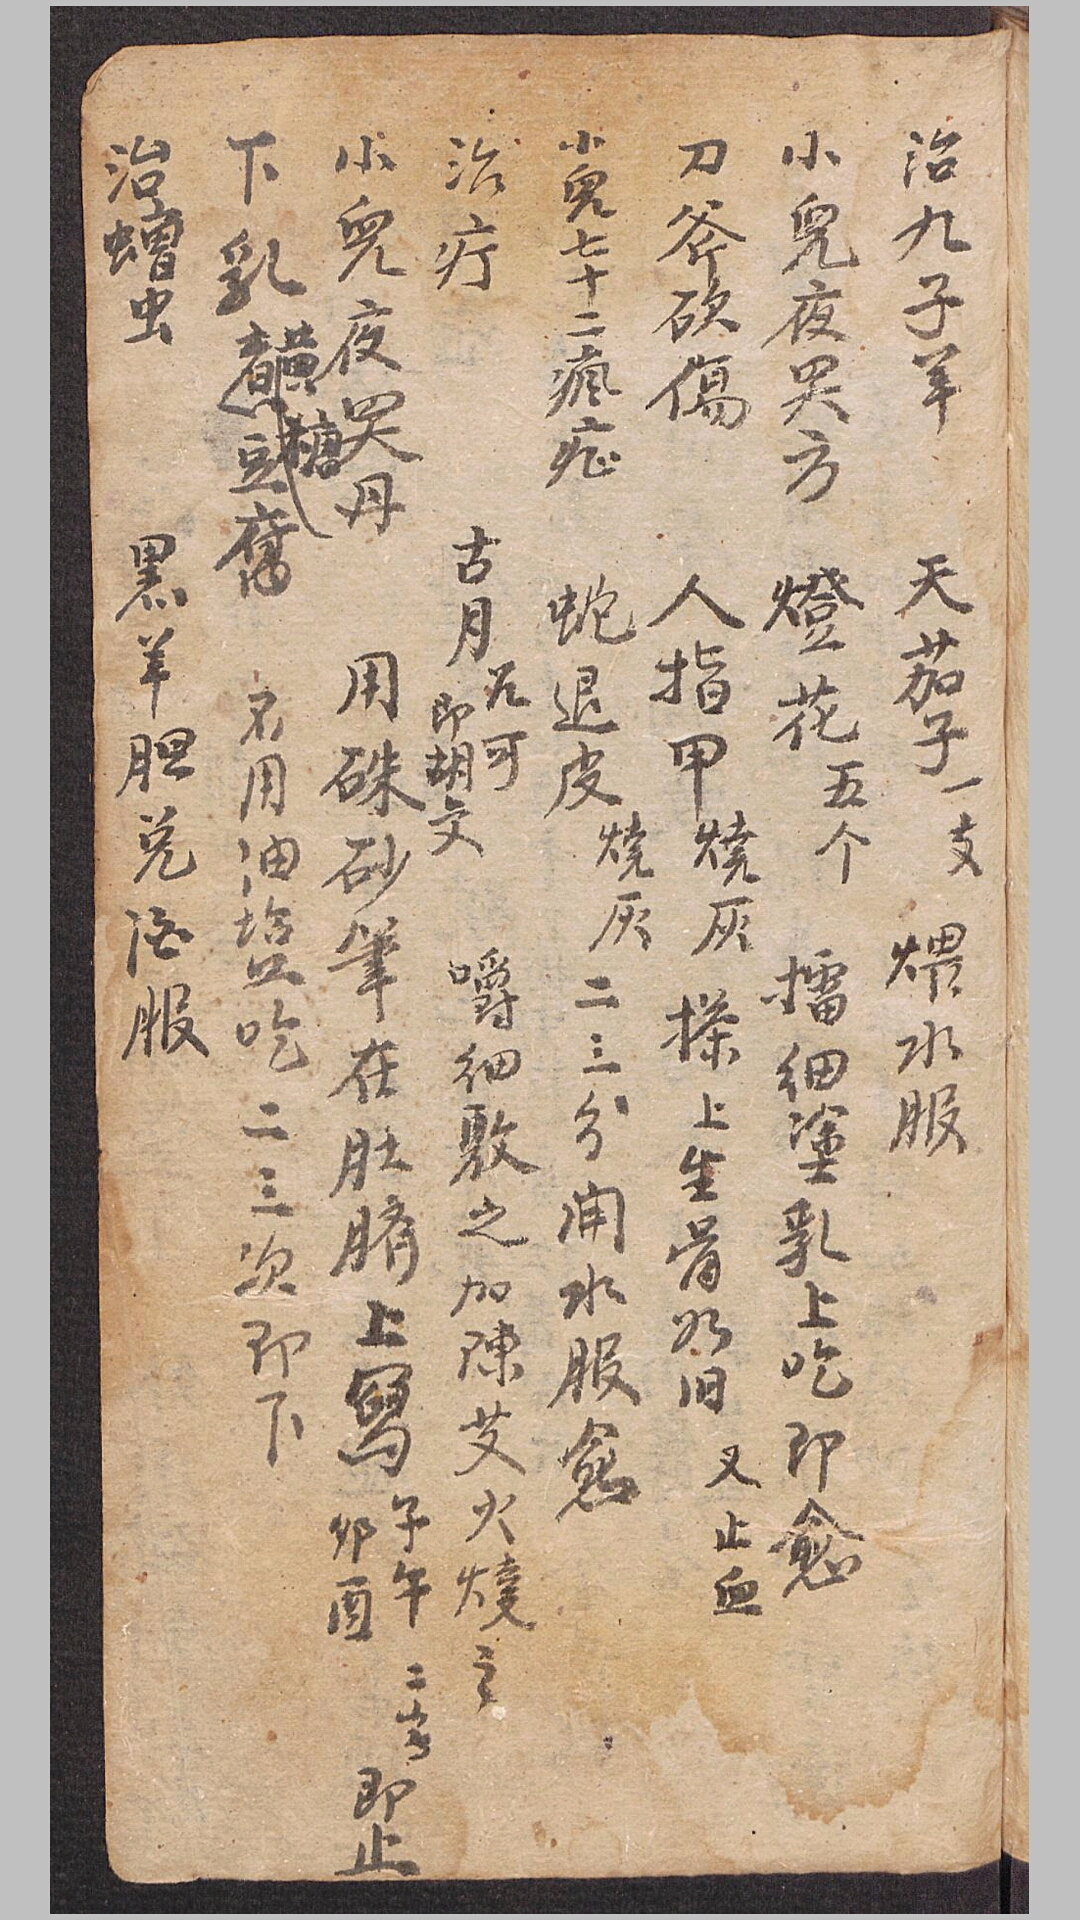 治九子羊 天茄子一支 煨水服
小兒夜哭方 燈花五个 擂細塗乳上吃即愈
刀斧砍傷 人指甲燒灰 搽上生骨如旧 又止血
小兒七十二瘋症 蛇退皮燒灰二三分開水服愈
治疔 古月 即胡 嚼細敷之加陳艾火燒之
小兒夜哭丹 用硃砂筆在肚臍上寫子午卯酉二字即止
下乳 糖 豆腐 不用油塩吃二三次即下
治蟬虫 黑羊胆兑酒服